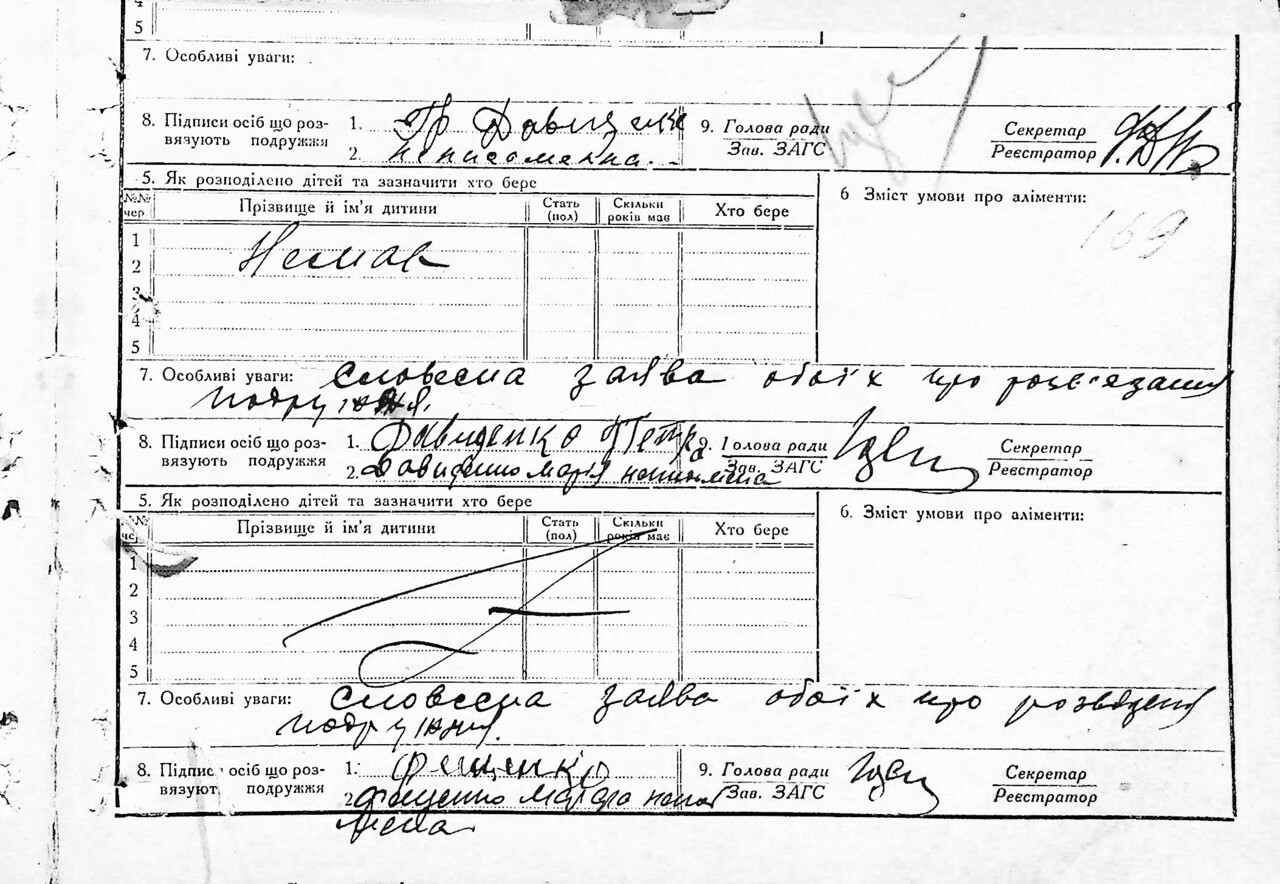 4
5
7. Особливі уваги:
8. Підписи осіб що роз-
вязують подружжя
1. Гр Давиденко
2. неписоменна.
9. Голова ради
Зав. ЗАГС
Секретар
Реєстратор
5. Як розподілено дітей та зазначити хто бере
№№ чер
Прізвище й ім'я дитини
Стать (пол)
Скільки років має
Хто бере
6 Зміст умови про аліменти:
169
1
2 Немає
3
4
5
7. Особливі уваги: Словесна заява обоїх про розв'язання
подружжя.
8. Підписи осіб що роз-
вязують подружжя
1. Давиденко Петро
2. Давиденко Марія
9. Голова ради
Зав. ЗАГС
Секретар
Реєстратор
5. Як розподілено дітей та зазначити хто бере
№
Прізвище й ім'я дитини
Стать (пол)
Скільки років має
Хто бере
6. Зміст умови про аліменти:
1
2
3
4
5
7. Особливі уваги: Словесна заява обоїх про
подружжя.
8. Підписи осіб що роз-
вязують подружжя
1. Фещенко
2. Фещенко
9. Голова ради
Зав. ЗАГС
Секретар
Реєстратор